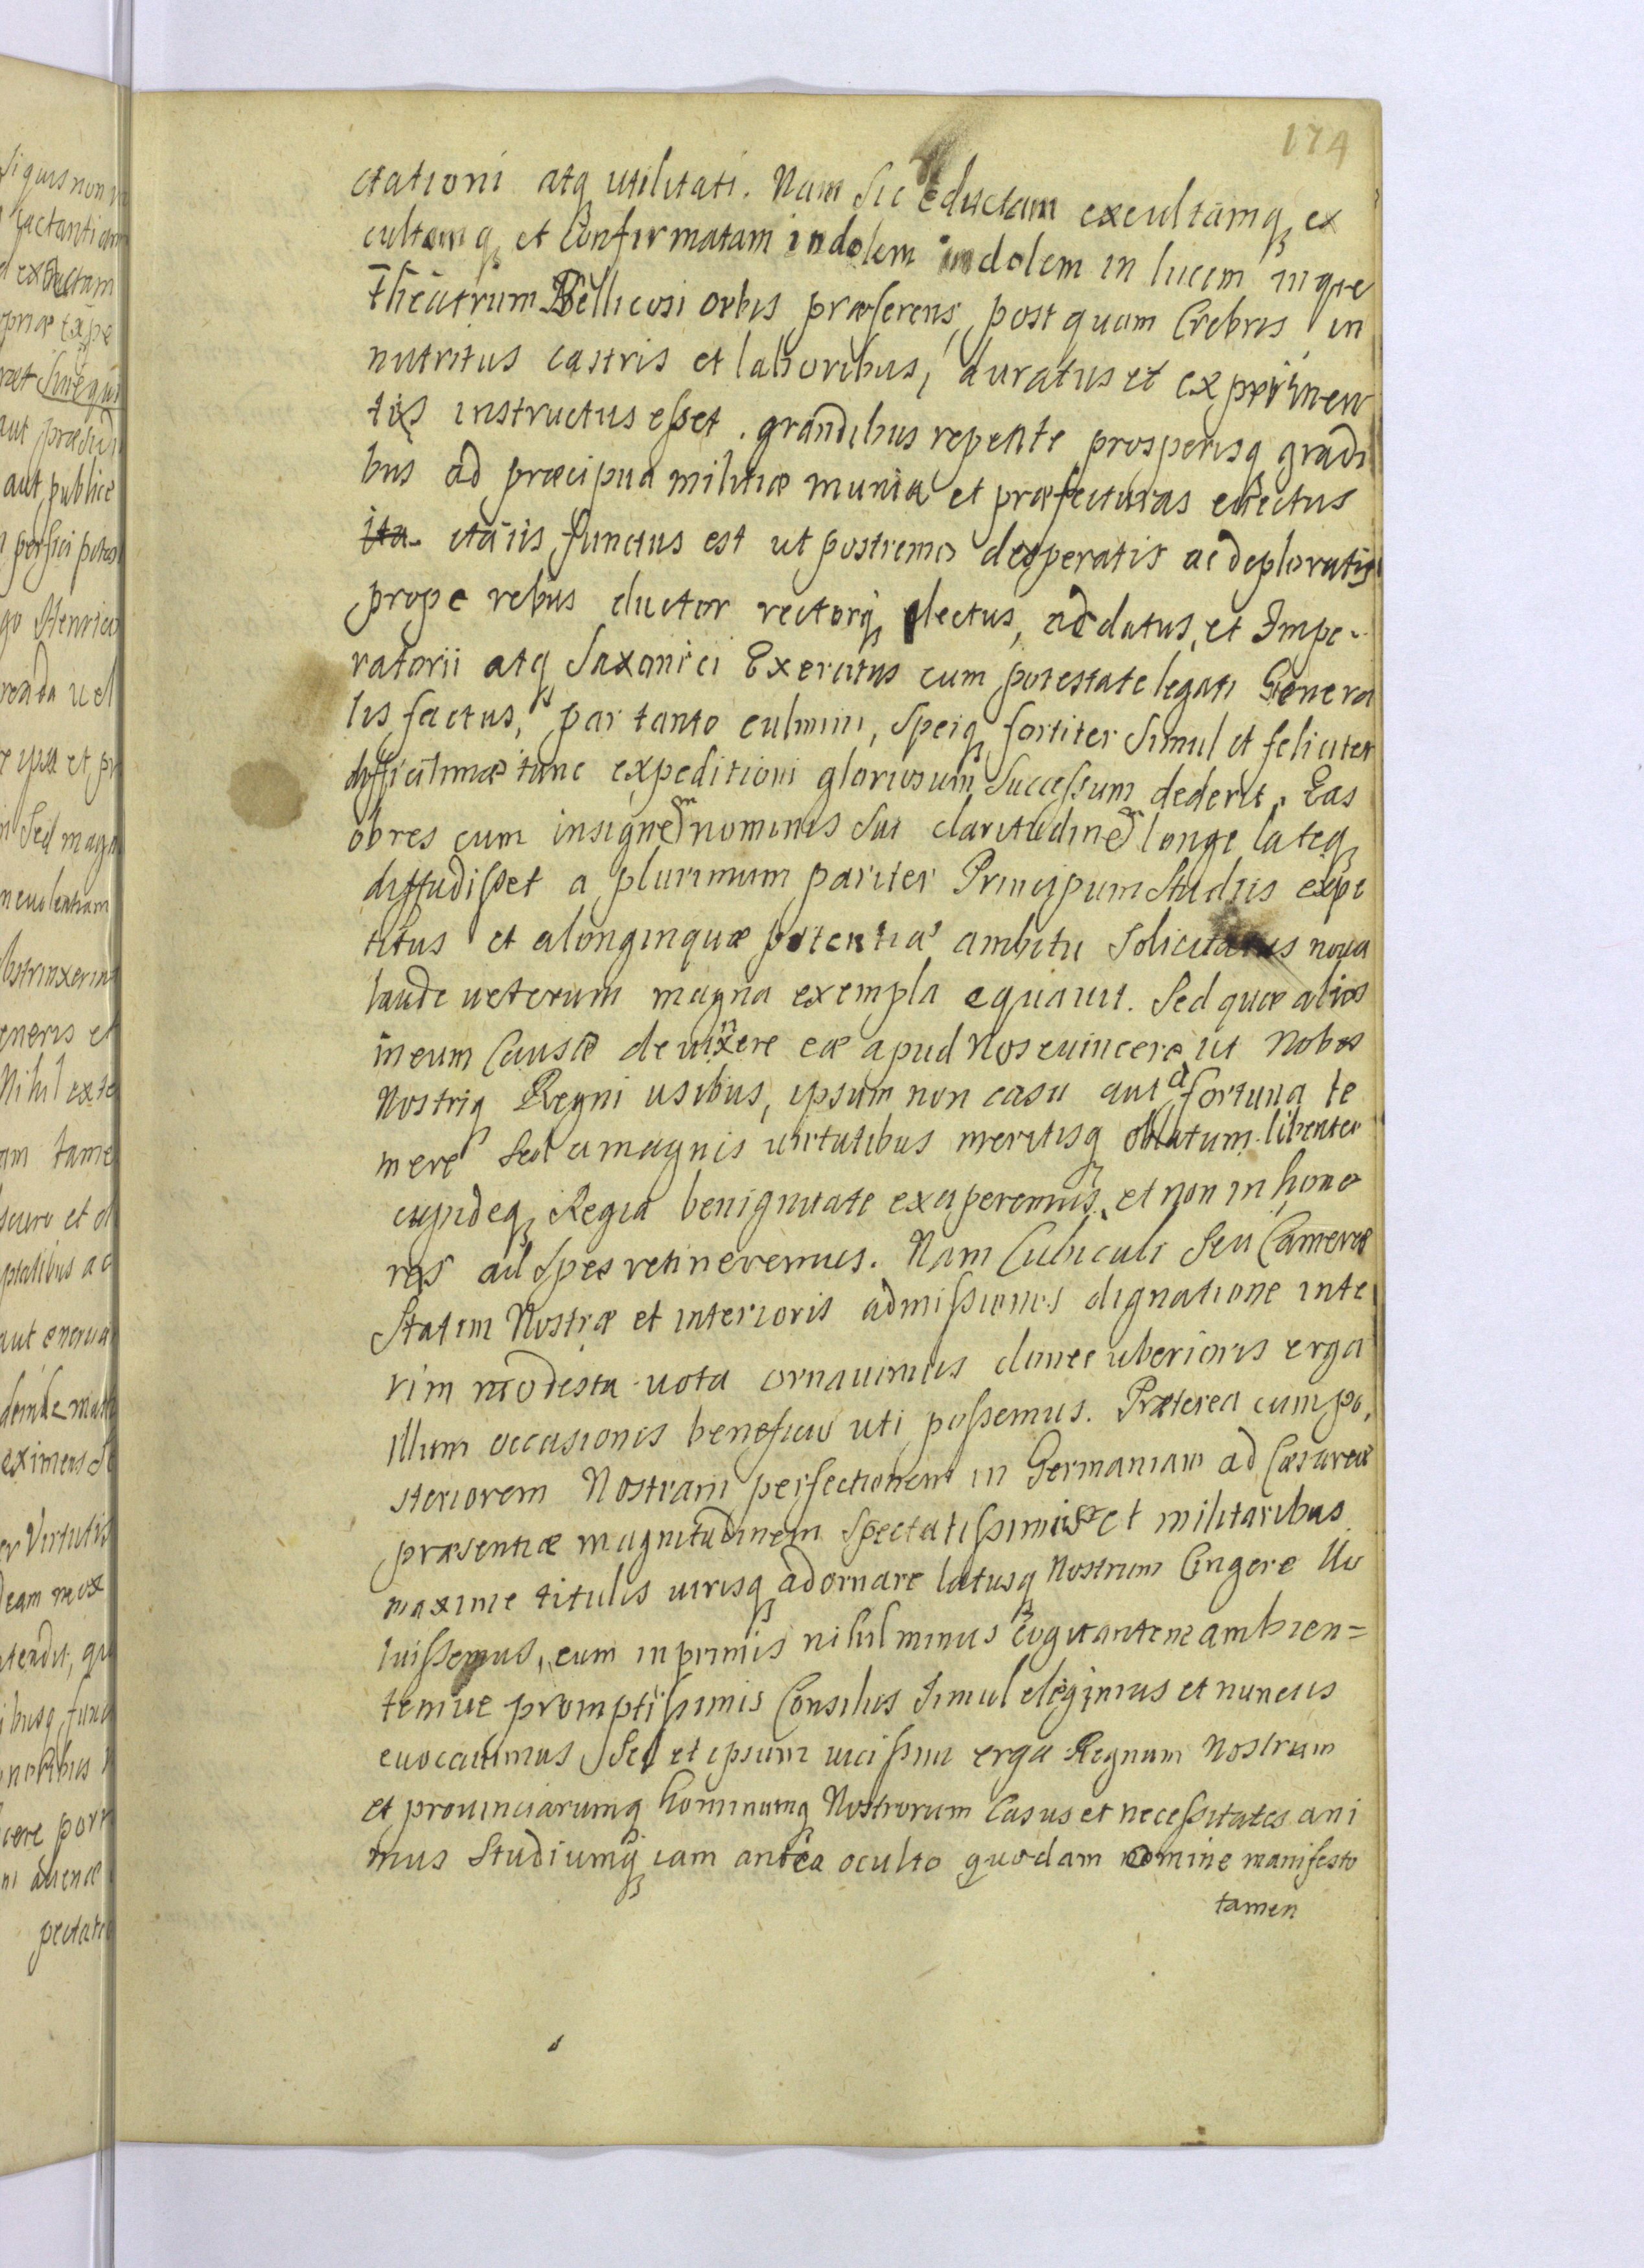 174
ctationi atq utilitati. Nam sic eductam excultamq ex
cultamq et Confirmatam indolem indolem in lucem inque
theatrum Bellicosi orbis præferens, post quam Crebris in
nutritus castris et laboribus, duratus et experimen
tis instructus esset. grandibus repente prosperisq gradi
bus ad præcipua militiæ munia et præfecturas evectus
ita iis functus est ut postremo desperatis ac deploratis
prope rebus ductor rectorq electus, ac datus, et Impe-
ratorii atq Saxonici Exercitus cum potestate legati Genera
lis factus, par tanto culmini, speiq fortiter simul et feliciter
difficilimæ tunc expeditioni gloriosum Successum dederit. Eas
obres cum insignem nominis sui claritudinem longe lateq
diffudisset a plurimum pariter Principum Studiis expe
titus et a longinquæ potentia ambitu solicitatus noua
laude ueterum magna exempla equauit. Sed quæ alios
in eum Causæ deuinxere eæ apud Nos euincere, ut Nobis
Nostriq Regni usibus, ipsum non casu aut a fortuna te
mere sed a magnis uirtutibus meritisq oblatum libenter
cupideq Regia benignitate exciperemus, et non in hono
res ad spes retineremus. Nam Cubiculi seu Cameræ
Statim Nostræ et interioris admissionis dignatione inte
rim modesta uota ornauimus donec uberioris erga
illum occasionis beneficio uti possemus. Præterea cum po,
steriorem Nostram perfectionem in Germaniam ad Cæsareæ
præsentiæ magnitudinem spectatissimis et militaribus
maxime titulis uirisq adornare latusq Nostrum Cingere Uo
luissemus, eum inprimis nihil minus cogitantem ambien=
temue promptissimis Consiliis simul elegimus et nunciis
euocauimus Sed et ipsum uicissim erga Regnum Nostrum
et prouinciarumq hominumq Nostrorum Casus et necessitates ani
mus Studiumq iam antea oculto quodam nomine manifesto
tamen